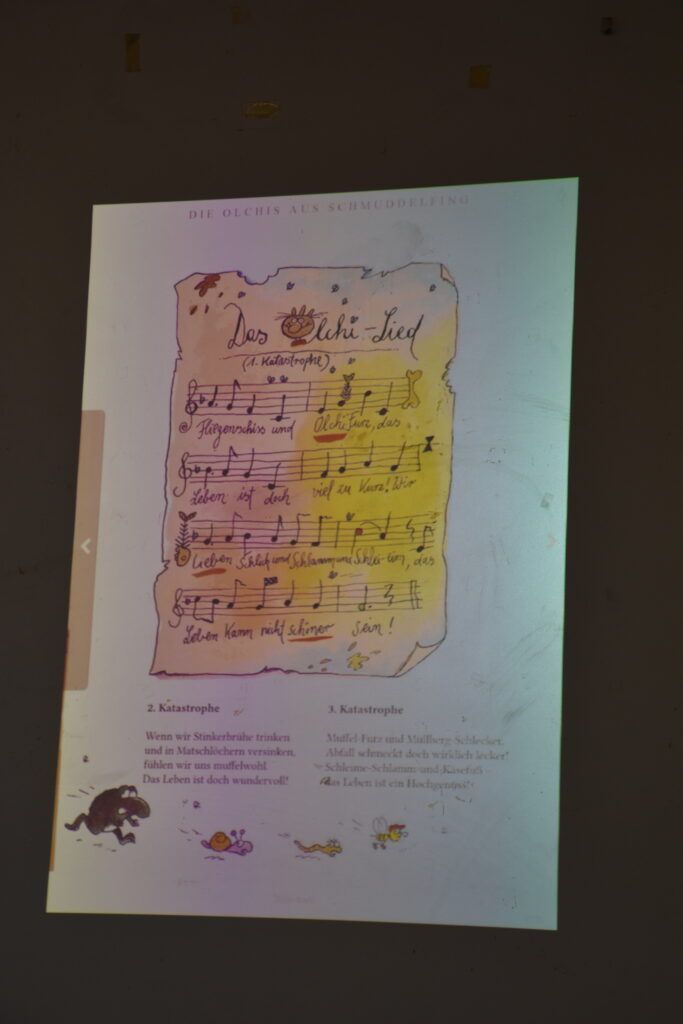 DIE OLCHIS AUS SCHMUDDELFING
Das Olchi-Lied
(1. Katastrophe)
Fliegenschiss und Olchi Furz, das
Leben ist doch viel zu kurz! Wir
lieben Schlick und Schlamm und Schlei-im, das
Leben kann nicht schöner sein!
2. Katastrophe
Wenn wir Stinkerbrühe trinken
und in Matschlöchern versinken,
fühlen wir uns muffelwohl.
Das Leben ist doch wundervoll!
3. Katastrophe
Muffel-Furz und Müllberg-Schlecker,
Abfall schmeckt doch wirklich lecker!
Schleime-Schlamm-und-Käsefuß
das Leben ist ein Hochgenuss!